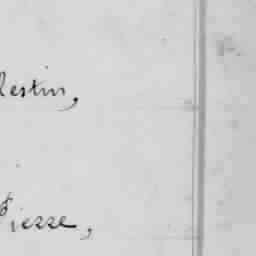 lestin,
Pierre,